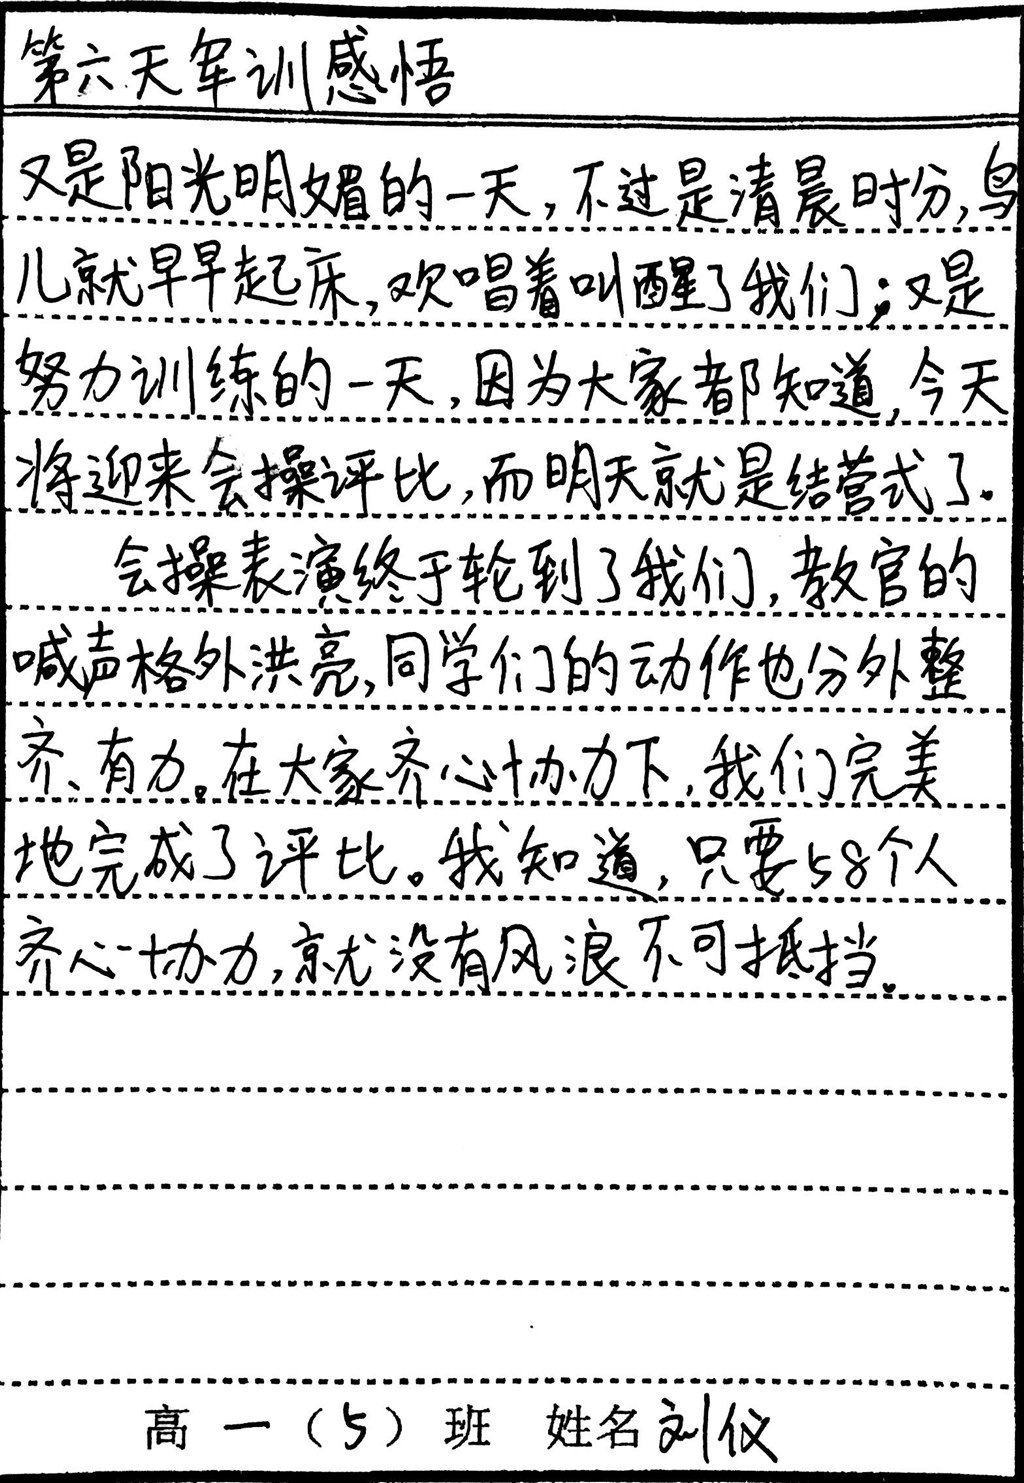 第六天军训感悟
又是阳光明媚的一天,不过是清晨时分,鸟
儿就早早起床,欢唱着叫醒了我们;又是
努力训练的一天,因为大家都知道,今天
将迎来会操评比,而明天就是结营式了.
会操表演终于轮到了我们,教官的
喊声格外洪亮,同学们的动作也分外整
齐、有力。在大家齐心协力下,我们完美
地完成了评比。我知道,只要58个人
齐心协力,就没有风浪不可抵挡。
高一(5)班 姓名刘仪